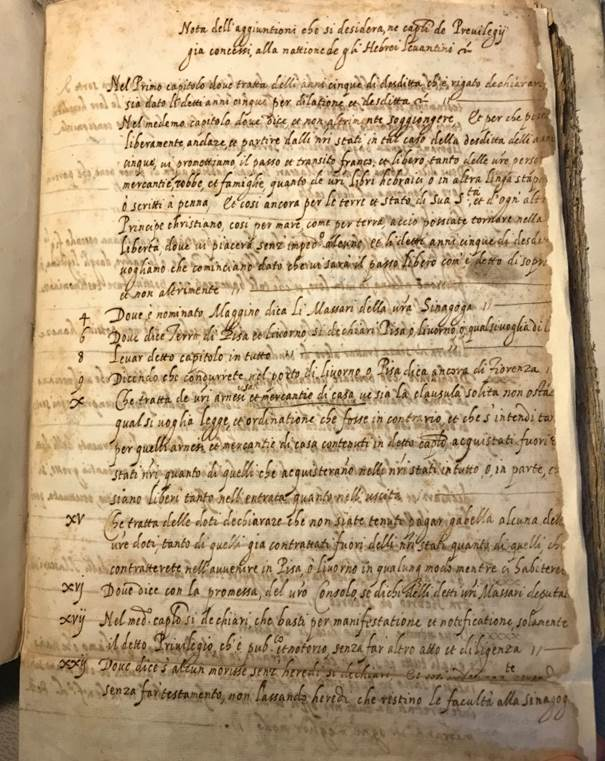 Nota dell'aggiuntioni che si desidera, ne capli de Previlegij
gia concessi, alla nattione de gli Hebrei Levantini
Nel Primo capitolo dove tratta delli anni cinque di desditta, ch'è rigato dechiarar
sia dato li detti anni cinque per dilatione et desditta
Nel medemo capitolo, dove dice, et non altrim.te soggiongere Et per che
liberamente andare, et partire dalli nri stati in tal caso della desditta delli
cinque, vi promettiamo il passo et transito franco, et libero, tanto delle vre perso
mercantie, robbe, et famiglie, quanto de vri libri hebraici o in altra linga
o scritti à penna Et cosi ancora per le terre et stato di Sua S.tà et d'ogn' alt
Principe christiano, cosi per mare, come per terra, acciò possiate tornare nella
libertà, dove vi piacerà senz' imped.o alcuno, et li detti anni cinque di desdi
vogliano che cominciano dato che vi sarà il passo libero com'è detto di sopr
et non altrimente
4 Dove è nominato Maggino dica Li Massari della vra Sinagoga
6 Dove dice Terre di Pisa et Livorno, si dechiari Pisa, o livorno, o qual si voglia di
8 Levar detto capitolo in tutto
9 Dicendo che condurrete nel porto di livorno o Pisa dica ancora di Fiorenza
X Che tratta de vri arnesi et mercantie di casa, ve sia la clausula solita non osta
qual si voglia legge, et ordinatione che fosse in contrario, et che s'intendi ta
per quelli arnesi et mercantie di casa contenuti in detto caplo acquistati fuori
stati nri quanto di quelli che acquisterano nelli nri stati in tutto o, in parte,
siano liberi tanto nell'entrata quanto nell'uscita
XV Che tratta delle doti dechiarare che non siate tenuti pagar gabella alcuna del
vre doti, tanto di quelli gia contrattati fuori delli nri stati quanto di quelli, ch
contratterete nell'avvenire in Pisa, o livorno in qualunq modo mentre ci habitere
XVJ Dove dice con la promessa, del vro Consolo, se dichi delli detti vri Massari
XVIJ Nel med.o caplo si dechiari che basti per manifestatione et notificatione, solamente
il detto Privilegio, ch'è pub.co et notorio, senza far altro atto et diligenza
XXIJ Dove dice s'alcun morisse senz' heredi si dechiari
senza far testamento, non lassando heredi che restino le facultà alla sinagog